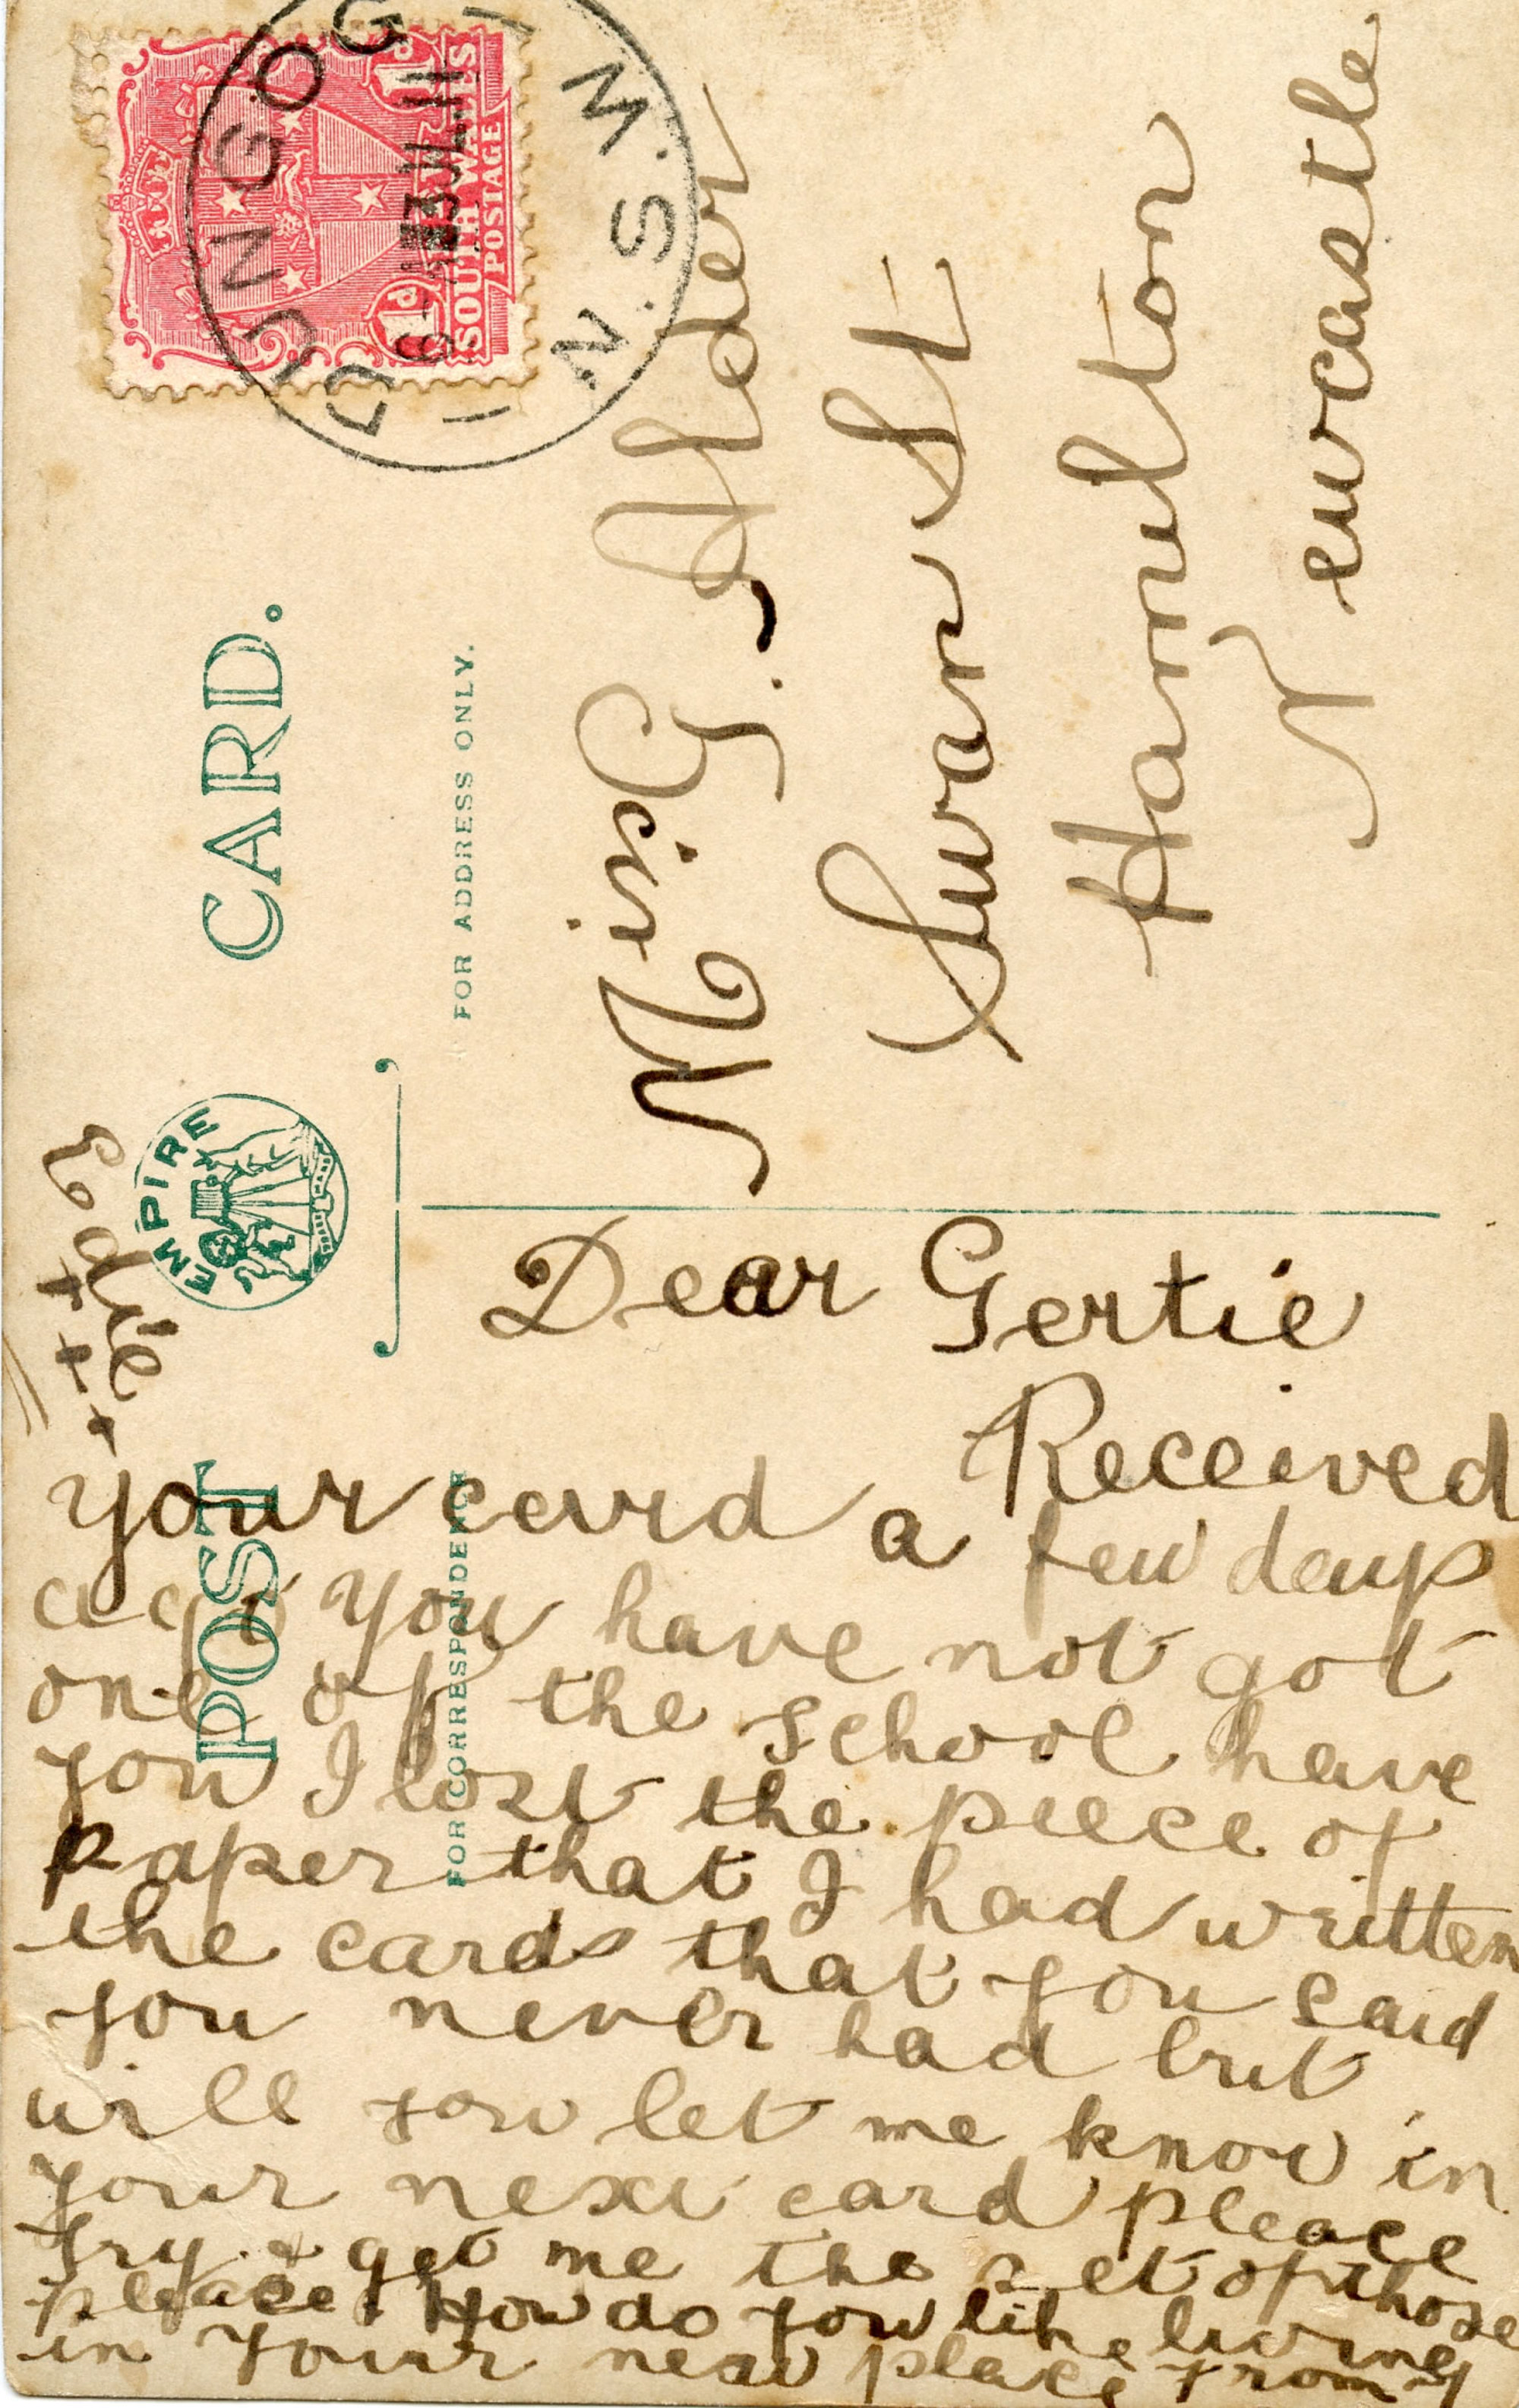 POST CARD.
EMPIRE
FOR CORRESPONDENCE
FOR ADDRESS ONLY.
1d 1d
SOUTH WALES
POSTAGE
DUNGOG
N.S.W
3 JL 11
Miss G. Alder
Swan St
Hamilton
Newcastle
Dear Gertie
Received
your card a few days
ago you have not got
one of the school have
you I lost the piece of
paper that I had written
the cards that you said
you never had but
will you let me know in
your next card please
Try & get me the set of those
please. How do you like living
in your new place from
Edie
+ + +